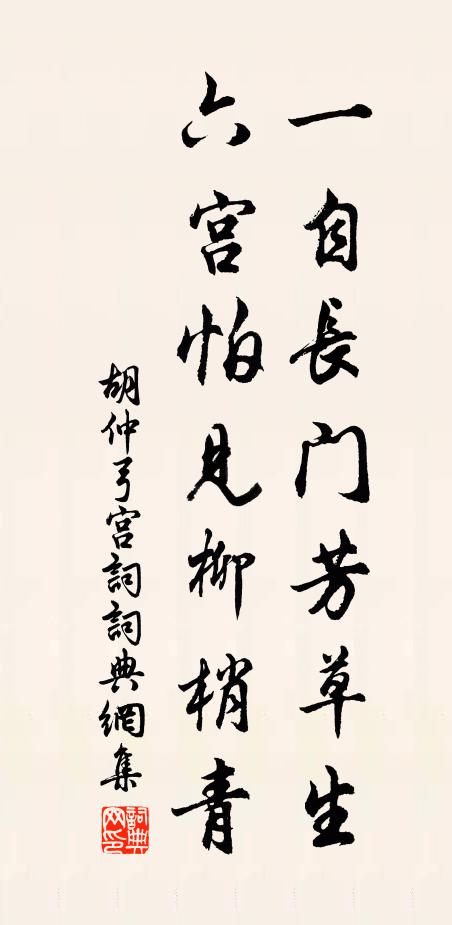 一自長门芳草生
六宫怕見柳梢青
胡仲弓宫詞詞典網集
詞典网印